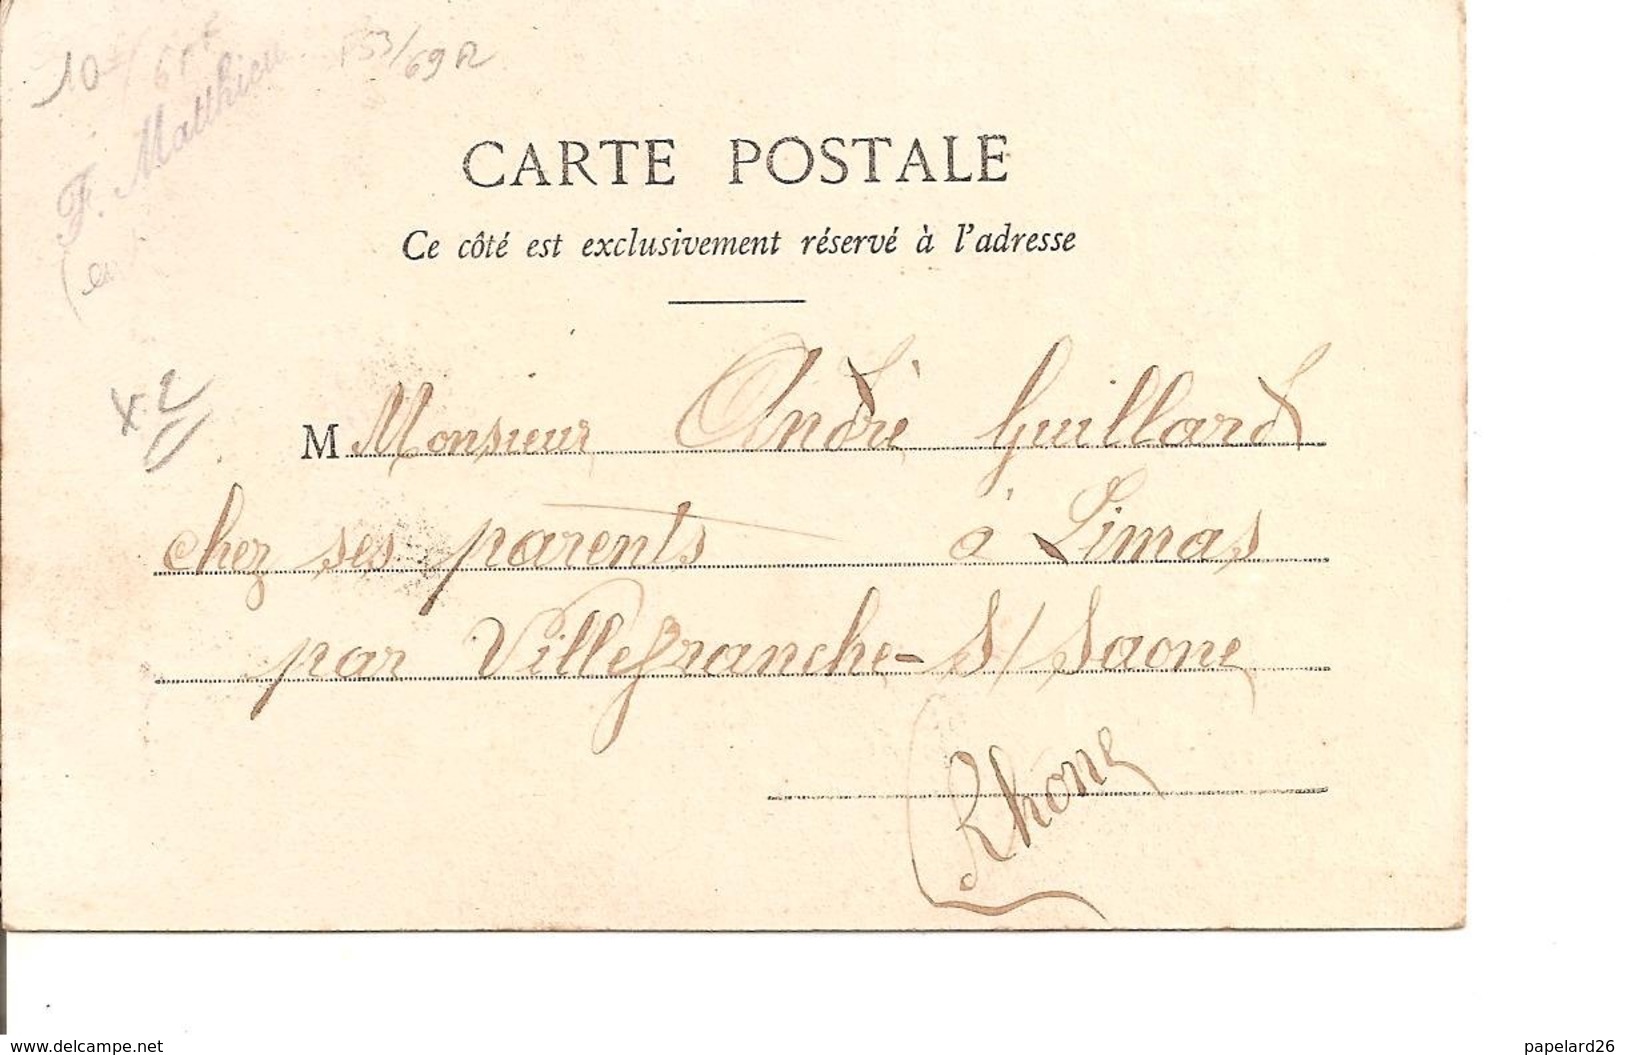 10
F. Matthieu
69 R
CARTE POSTALE
Ce côté est exclusivement réservé à l'adresse
M Monsieur André Guillard
chez ses parents à Limas
par Villefranche-S/Saone
(Rhone
www.delcampe.net
papelard26